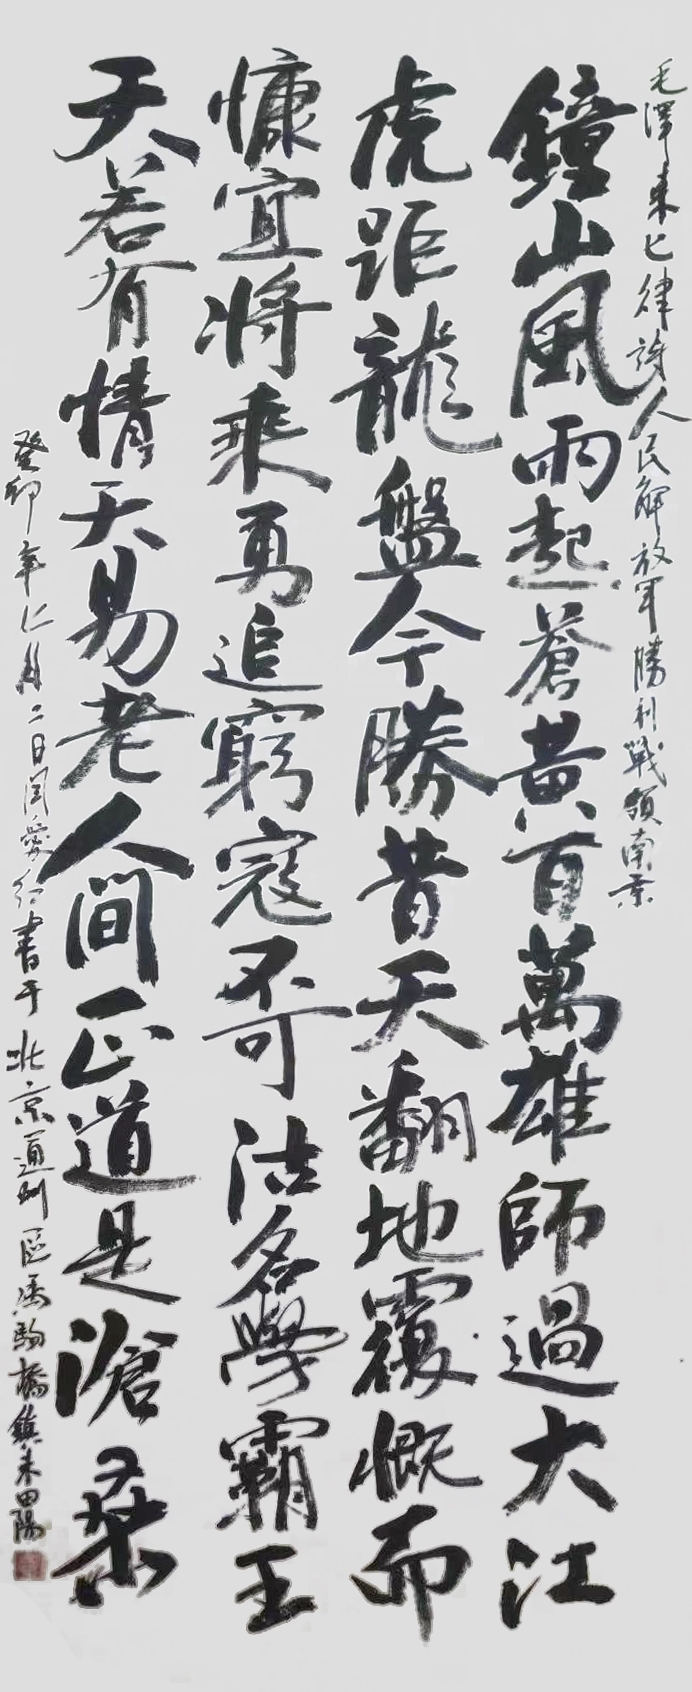 毛澤東七律詩人民解放軍勝利戰領南京
鐘山風雨起蒼黃百萬雄師過大江
虎距龍盤今勝昔天翻地覆慨而
慷宜將乘勇追窮寇不可沽名學霸王
天若有情天易老人間正道是滄桑
癸卯年七月二日閆愛行書于北京通州區馬駒橋鎮